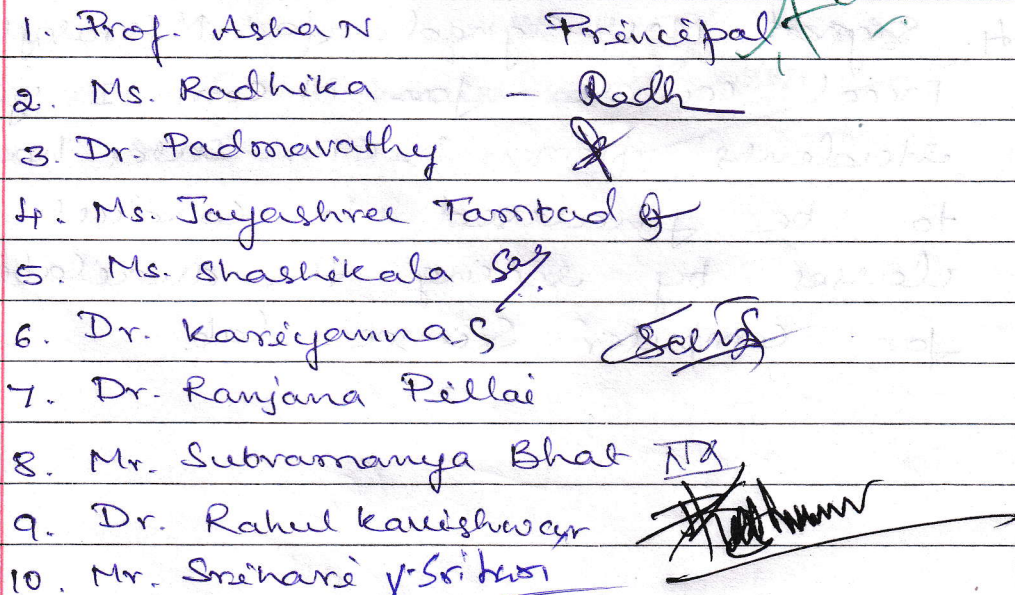 1. Prof. Asha N Principal
2. Ms. Radhika - Radh
3. Dr. Padmavathy
4. Ms. Jayashree Tambad
5. Ms. Shashikala
6. Dr. Kariyanna S
7. Dr. Ranjana Pillai
8. Mr. Subramanya Bhat
9. Dr. Rahul Kavishwar
10. Mr. Srihari V. Srihari